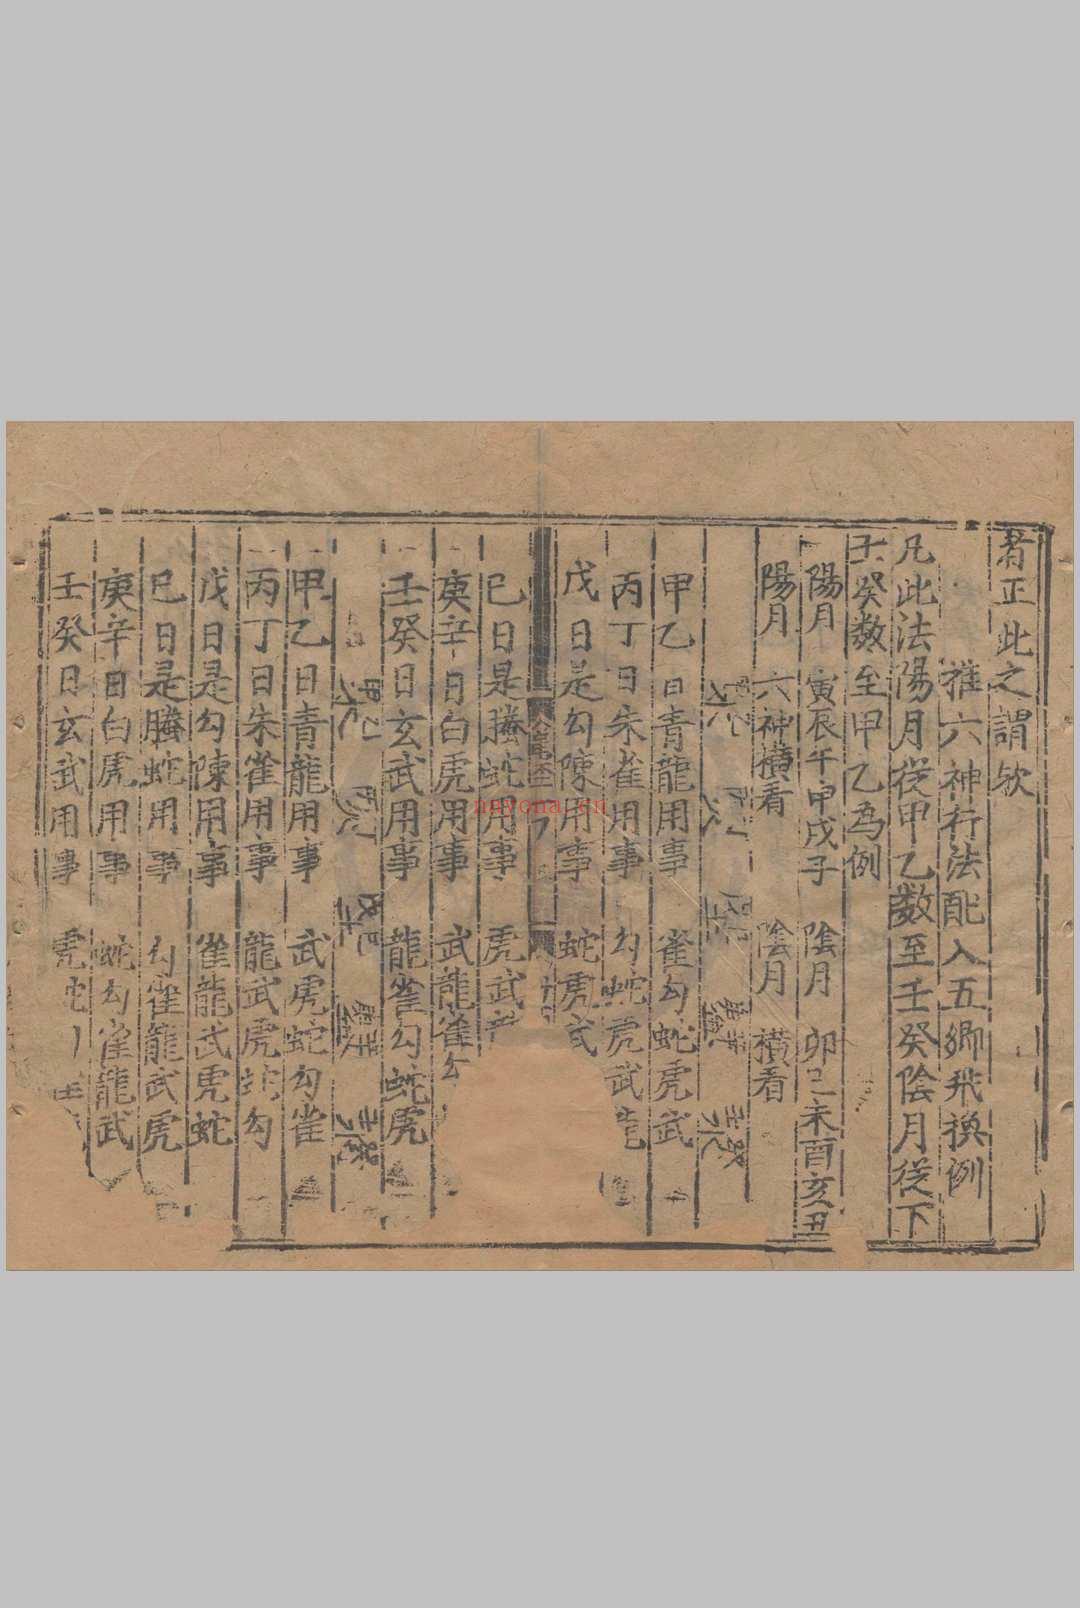 者正此之謂欤
推六神行法配入五鄉飛換例
凡此法陽月從甲乙数至壬癸陰月從下
壬癸数至甲乙為例
陽月 寅辰午申戌子 陰月 卯巳未酉亥丑
陽月 六神横看 陰月 横看
甲乙日青龍用事 雀勾蛇虎武
丙丁日朱雀用事 勾蛇虎武龍
戊日是勾陳用事 蛇虎武
巳日是螣蛇用事 虎武
庚辛日白虎用事 武龍雀勾
壬癸日玄武用事 龍雀勾蛇虎
甲乙日青龍用事 武虎蛇勾雀
丙丁日朱雀用事 龍武虎蛇勾
戊日是勾陳用事 雀龍武虎蛇
巳日是螣蛇用事 勾雀龍武虎
庚辛日白虎用事 蛇勾雀龍武
壬癸日玄武用事 虎蛇
nayona.cn